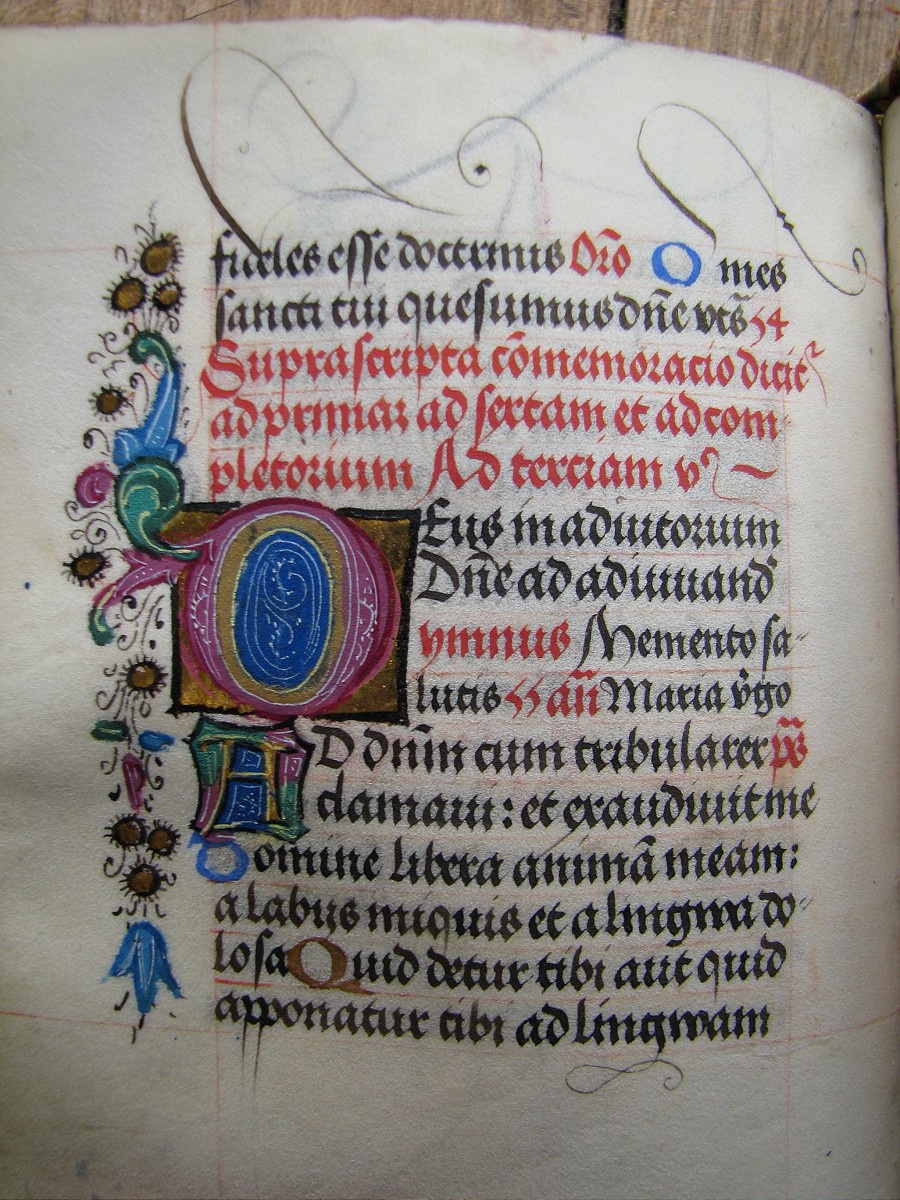 fideles esse doctrinis Orō O mēs
sancti tui quesumus dn̄e vts̄ 54
Suprascripta cōmemoracio dicit᷑
ad primaꝫ ad sextam et ad com
pletorium Ad terciam vꝰ
DEus in adiutorium
Dn̄e ad adiuuand̄
ymnus Memento sa-
lutis 55 an̄ Maria v̄go
AD dn̄m cum tribularer pš
clamaui: et exaudiuit me
Domine libera animā meam:
a labijs iniquis et a lingwa do-
losa Quid detur tibi aut quid
apponatur tibi ad lingwam